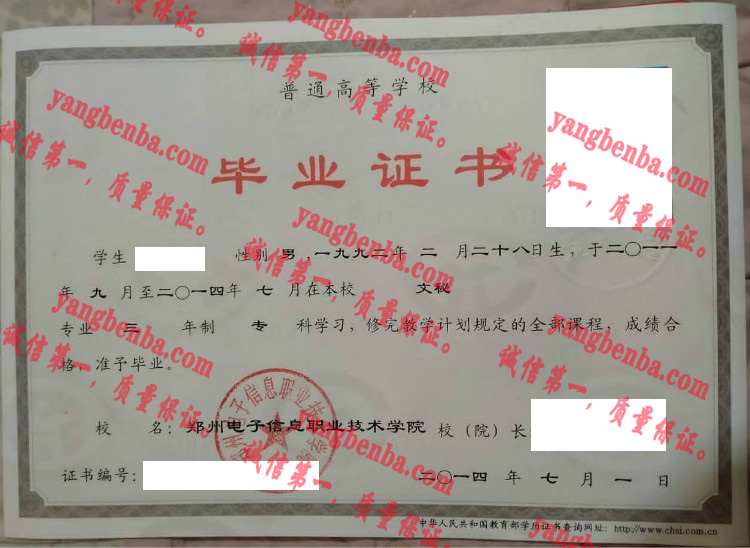 普通高等学校
毕业证书
学生 性别 男，一九九二年 二 月二十八日生，于二〇一一
年 九 月至二〇一四年 七 月在本校 文秘
专业 三 年制 专 科学习，修完教学计划规定的全部课程，成绩合
格，准予毕业。
校 名：郑州电子信息职业技术学院 校（院）长
证书编号： 二〇一四 年 七 月 一 日
中华人民共和国教育部学历证书查询网址：http://www.chsi.com.cn
郑州电子信息职业技术学院
yangbenba.com
诚信第一，质量保证。
yangbenba.com
诚信第一，质量保证。
yangbenba.com
诚信第一，质量保证。
yangbenba.com
诚信第一，质量保证。
yangbenba.com
诚信第一，质量保证。
yangbenba.com
诚信第一，质量保证。
yangbenba.com
诚信第一，质量保证。
yangbenba.com
诚信第一，质量保证。